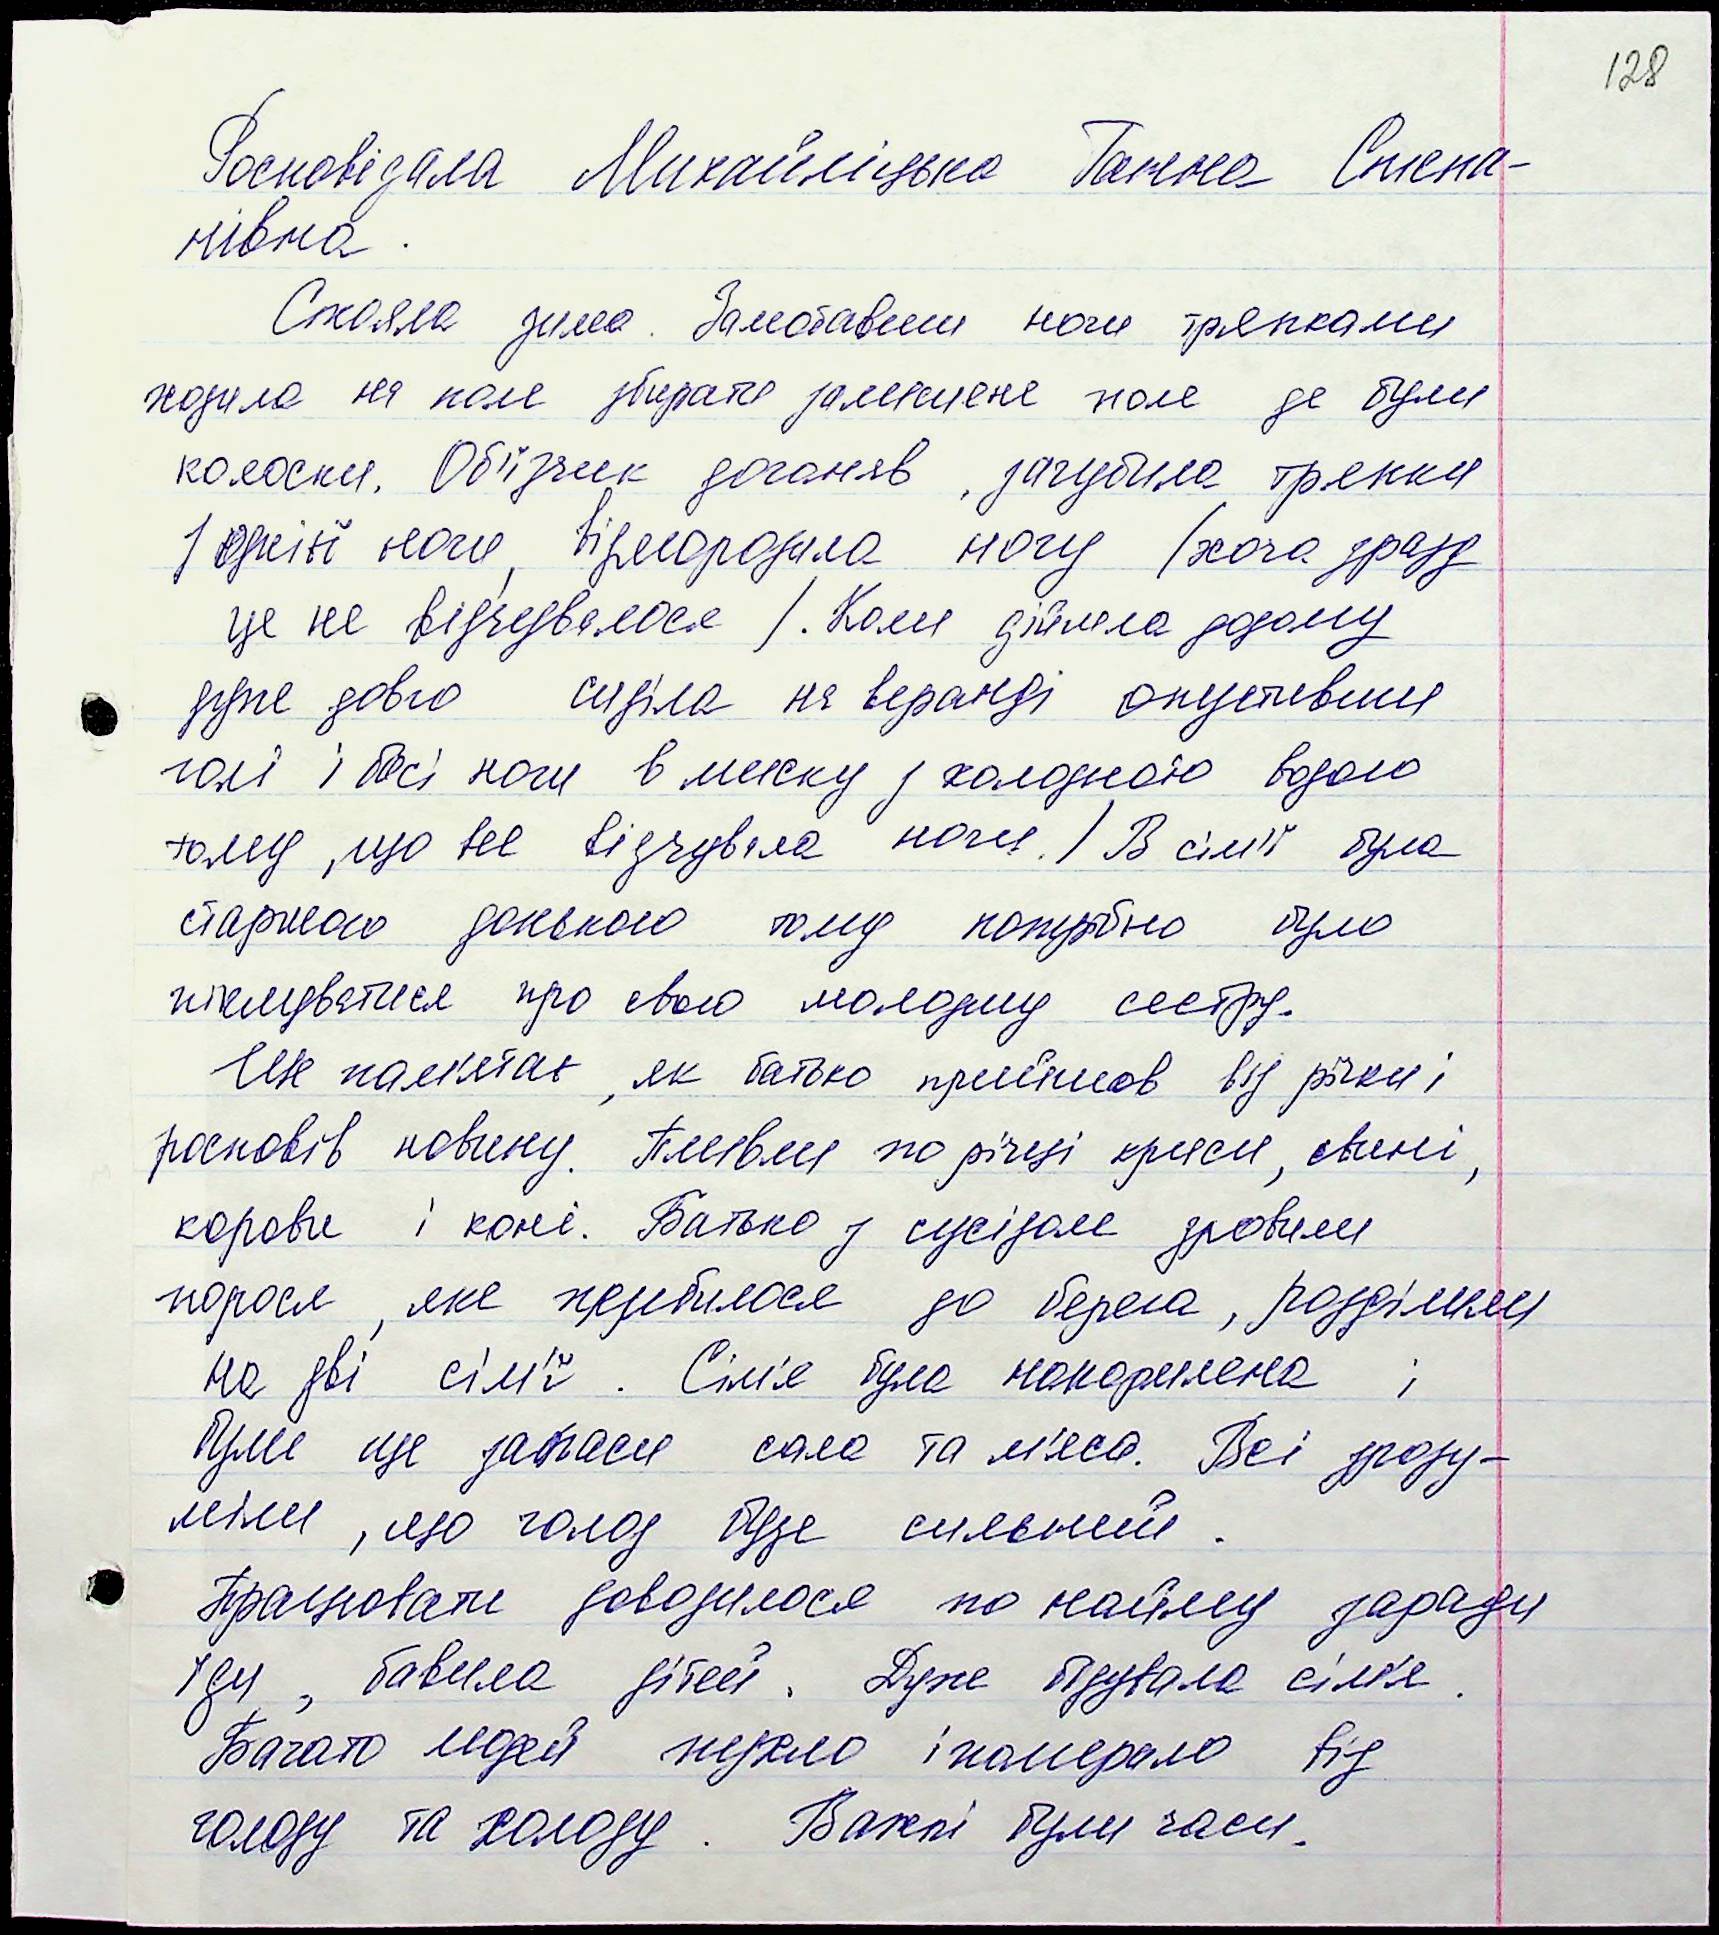 128
Росповідала Михайліцька Ганна Степа-
нівна.
Стояла зима. Замотавши ноги тряпками
ходила на поле збирати заметене поле де були
колоски. Об'їзчик доганяв, загубила тряпки
з однієї ноги, відморозила ногу (хоча зразу
це не відчувалося). Коли дійшла додому
дуже довго сиділа на веранді опустивши
голі і босі ноги в миску з холодною водою
тому, що не відчувала ноги.) В сім'ї була
старшою донькою тому потрібно було
піклуватися про свою молодшу сестру.
Ще пам'ятає, як батько прийшов від річки і
росповів новину. Пливли по річці криси, свині,
корови і коні. Батько з сусідом зловили
порося, яке прибилося до берега, розділили
на дві сім'ї. Сім'я була накормлена і
були ще запаси сала та м'яса. Всі зрозу-
міли, що голод буде сильний.
Працювати доводилося по найму заради
їди, бавила дітей. Дуже бідувала сім'я.
Багато людей пухло і помирало від
голоду та холоду. Важкі були часи.